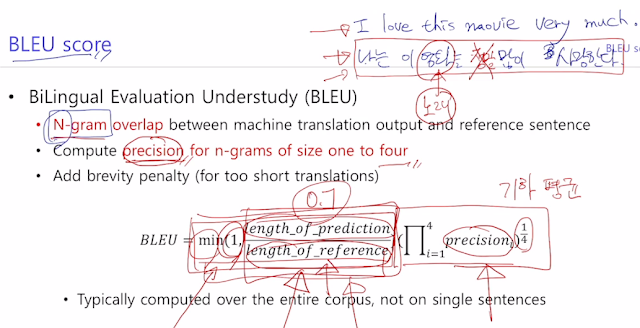 I love this movie very much.
BLEU score
나는 이 많이 사랑한다.
노래
• BiLingual Evaluation Understudy (BLEU)
• N-gram overlap between machine translation output and reference sentence
• Compute precision for n-grams of size one to four
• Add brevity penalty (for too short translations)
0.7
기하 평균
BLEU = min(1, length_of_prediction / length_of_reference) (∏_{i=1}^{4} precision_i)^{1/4}
• Typically computed over the entire corpus, not on single sentences